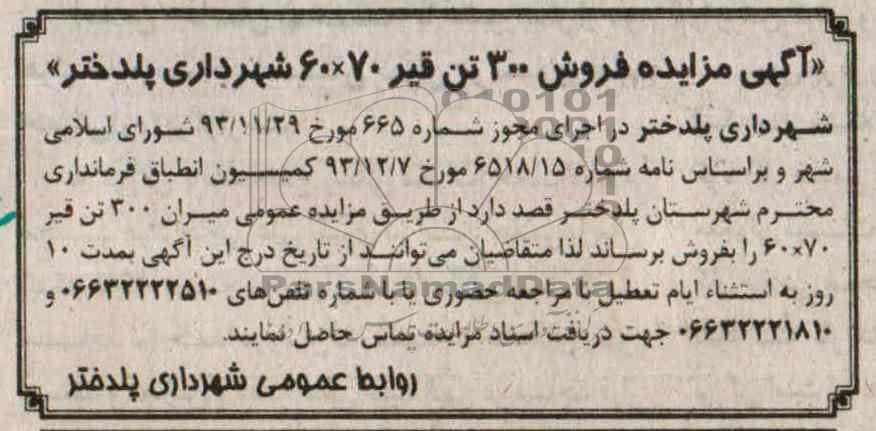 «آگهی مزایده فروش ۳۰۰ تن قیر ۷۰×۶۰ شهرداری پلدختر»
شهرداری پلدختر در اجرای مجوز شماره ۶۶۵ مورخ ۹۳/۱۱/۲۹ شورای اسلامی
شهر و براساس نامه شماره ۶۵۱۸/۱۵ مورخ ۹۳/۱۲/۷ کمیسیون انطباق فرمانداری
محترم شهرستان پلدختر قصد دارد از طریق مزایده عمومی میزان ۳۰۰ تن قیر
۷۰×۶۰ را بفروش برساند لذا متقاضیان می‌توانند از تاریخ درج این آگهی بمدت ۱۰
روز به استثناء ایام تعطیل با مراجعه حضوری یا با شماره تلفن‌های ۰۶۶۳۲۲۲۲۵۱۰ و
۰۶۶۳۲۲۲۱۸۱۰ جهت دریافت اسناد مزایده تماس حاصل نمایند.
روابط عمومی شهرداری پلدختر
ParsNamadData